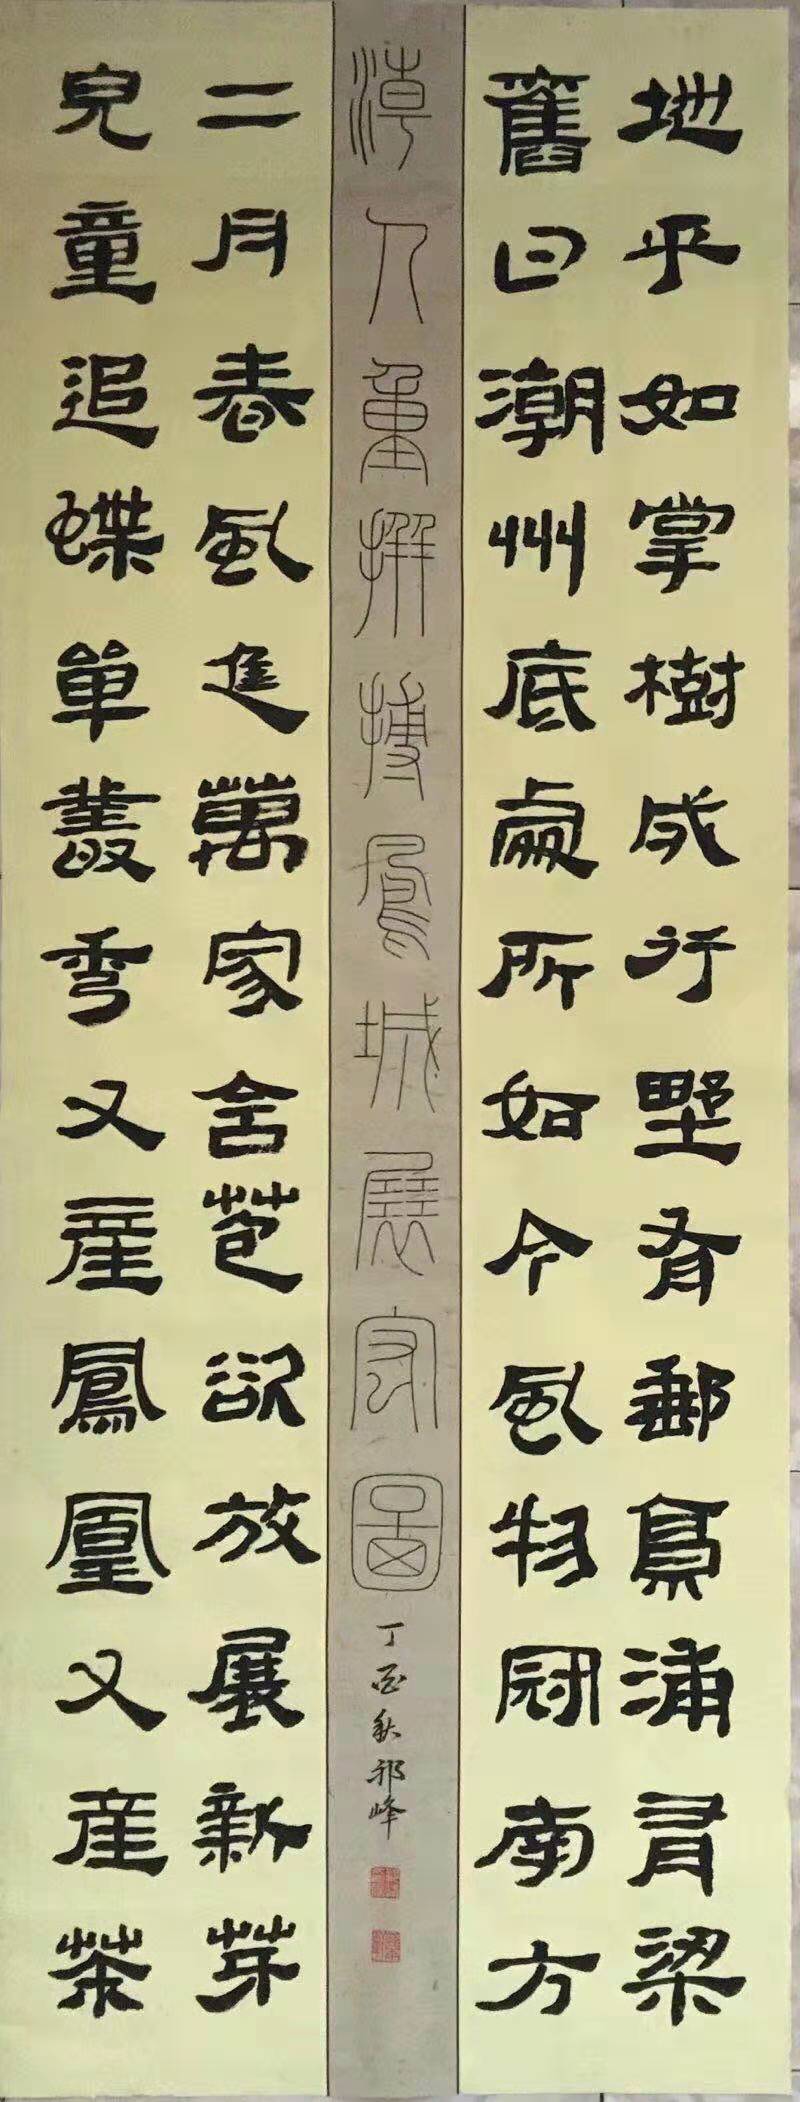 地平如掌樹成行野有郵亭浦有梁
舊日潮州底處所如今風物冠南方
潮人重拼搏鳳城展宏圖
丁酉秋祁峰
二月春風進萬家含苞欲放展新芽
兒童追蝶單叢秀又產鳳凰又產茶